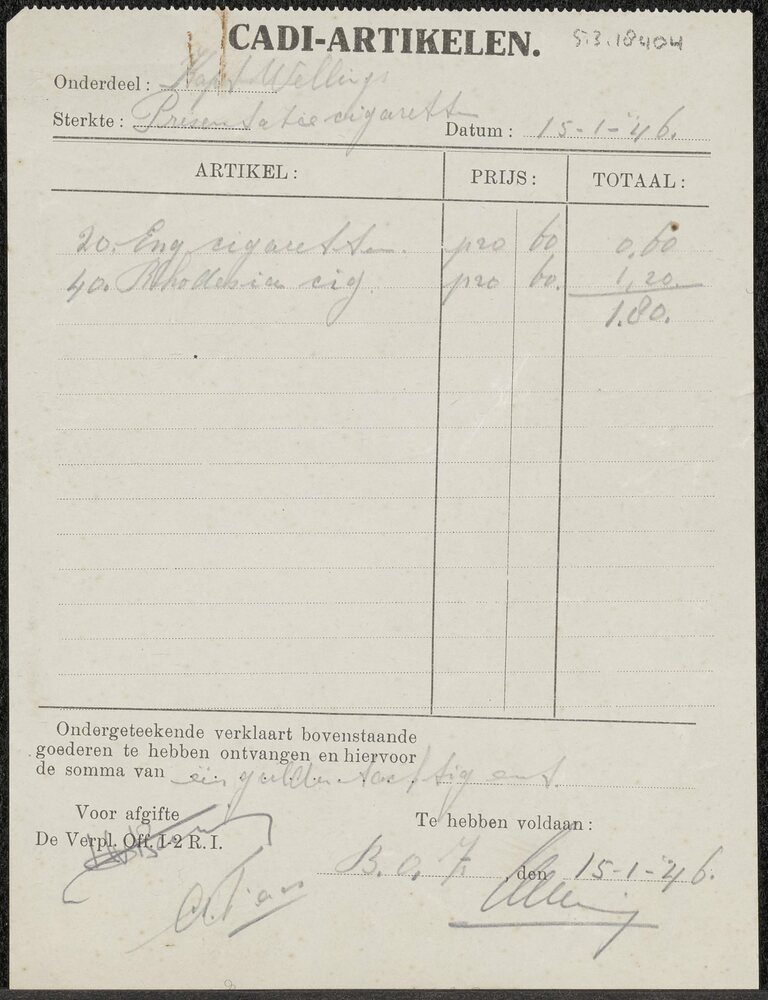 CADI-ARTIKELEN.
S.3.18404
Onderdeel: Kapt Wellings
Sterkte: Presentatie cigaretten
Datum: 15-1-'46.
ARTIKEL: PRIJS: TOTAAL:
20. Eng cigaretten. pro 60 0,60
40. Rhodesia cig. pro 60. 1,20
1.80.
Ondergeteekende verklaart bovenstaande
goederen te hebben ontvangen en hiervoor
de somma van één gulden tachtig cent.
Voor afgifte
De Verpl. Off. I-2 R. I.
Te hebben voldaan:
B. o. Z. , den 15-1-'46.